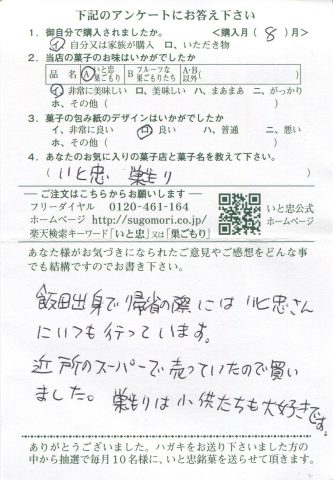 下記のアンケートにお答え下さい
1．御自分で購入されましたか。 <購入月( 8 )月>
イ．自分又は家族が購入 ロ、いただき物
2．当店の菓子のお味はいかがでしたか
品 名 A いと忠巣ごもり B フルーツな巣ごもりたち A・B以外( )
イ．非常に美味しい ロ、美味しい ハ、まあまあ ニ、がっかり
ホ、その他( )
3．菓子の包み紙のデザインはいかがでしたか
イ、非常に良い ロ．良い ハ、普通 ニ、悪い
ホ、その他( )
4．あなたのお気に入りの菓子店と菓子名を教えて下さい。
( いと忠 巣もり )
― ご注文はこちらからお願いします ―
フリーダイヤル 0120-461-164
ホームページ http://sugomori.co.jp/
楽天検索キーワード「いと忠」又は「巣ごもり」
いと忠公式
ホームページ
あなた様がお気づきになられたご意見やご感想をどんな事
でも結構ですのでお書き下さい。
飯田出身で帰省の際にはいと忠さん
にいつも行っています。
近所のスーパーで売っていたので買い
ました。巣もりは小供たちも大好きです。
ありがとうございました。ハガキをお送り下さいました方の
中から抽選で毎月10名様に、いと忠銘菓を送らせて頂きます。